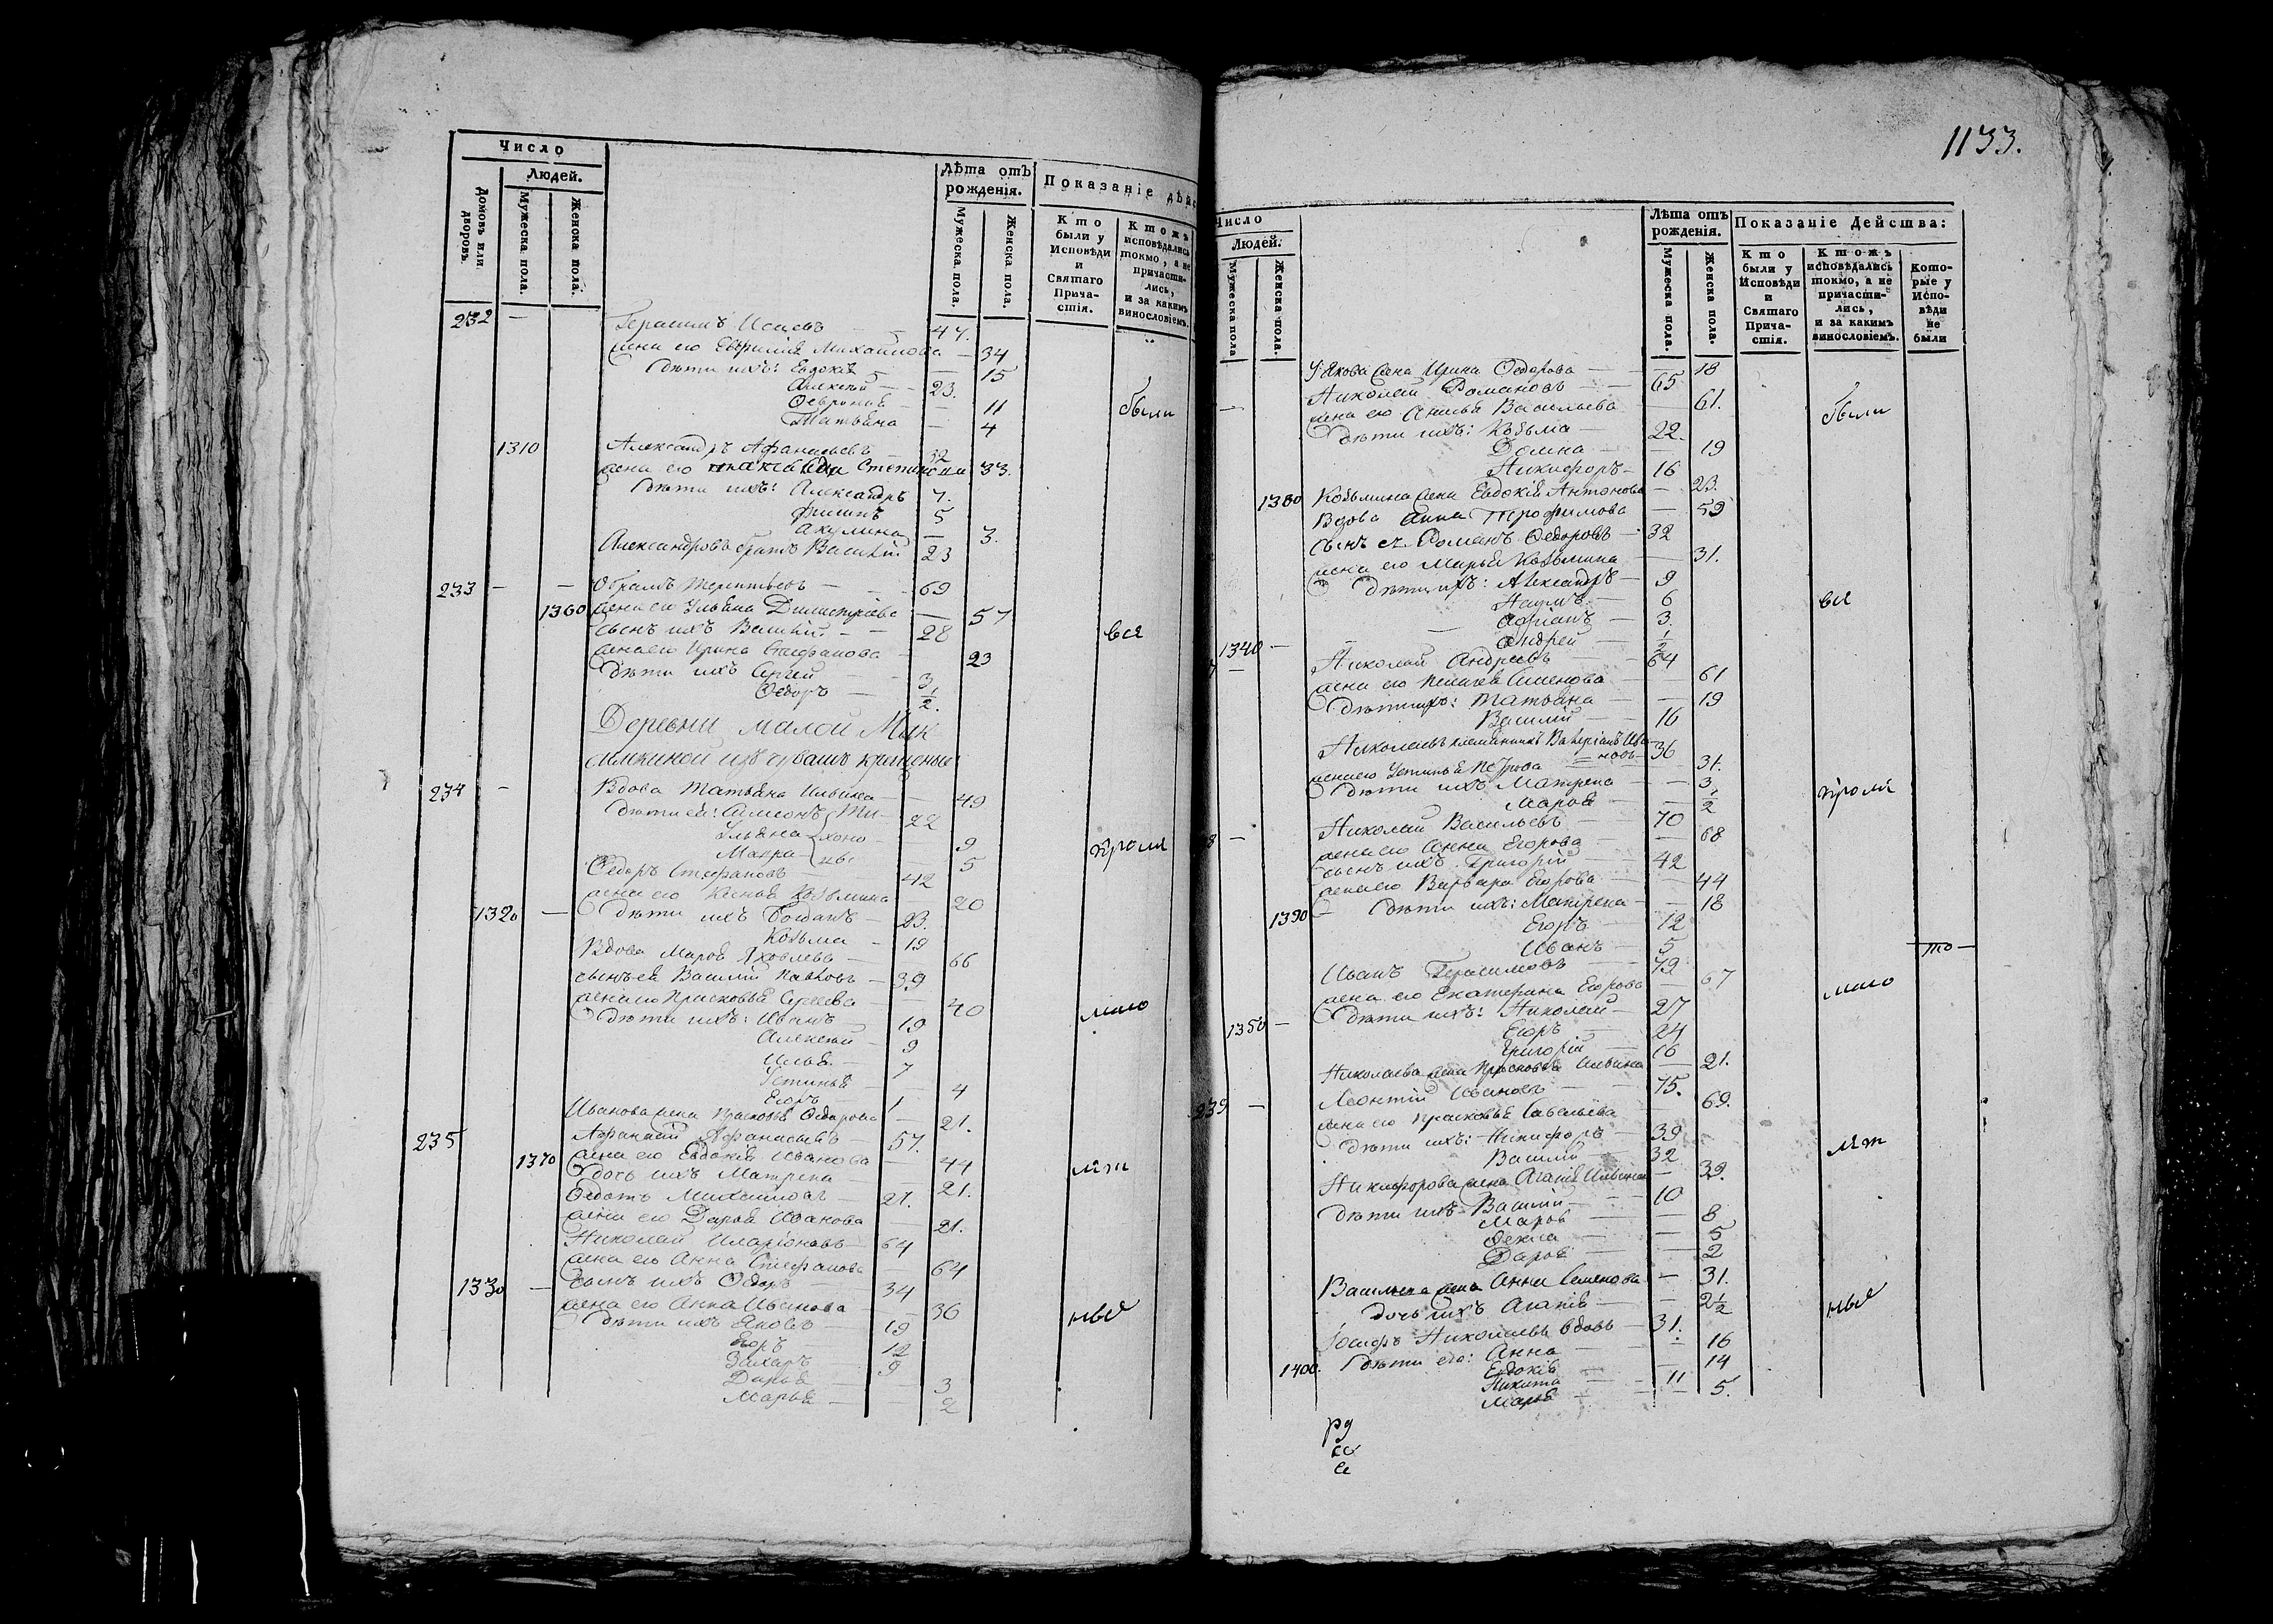 Число
Людей.
Домовъ или дворовъ.
Мужеска пола.
Женска пола.
Лѣта отъ рожденія.
Мужеска пола.
Женска пола.
Показаніе дѣйс
Кто были у Исповѣди и Святаго Причастія.
Ктожъ исповѣдались токмо, а не причастились, и за какимъ винословіемъ.
232 — Герасимъ Исаевъ — 47.
жена его Евфимія Михайлова — 34
дѣти ихъ: Евдокія — 15
Алексѣй — 23.
Февронія — 11 были
Татьяна — 4
1310 Александръ Афанасьевъ 32
жена его Степанова 33.
дѣти ихъ: Александръ 7.
Филипъ 5
Акулина — 3.
Александровъ братъ Василій 23
233 — — Абрамъ Терентьевъ — 69
1360 жена его Ульяна Димитріева — 57
сынъ ихъ Василій. — 28 вся
жена его Ирина Стефанова 23
дѣти ихъ Сергей — 3
Ѳедоръ — 1/2.
Деревни малой Мик
изъ чувашъ крещеные
234 — Вдова Татьяна Ильина — 49
дѣти ей: Симеонъ Ти- 22
Ульяна хоно- 9
Макра вы 5 кроме
Ѳедоръ Стефановъ — 42
жена его Козьмина 20
1320 — дѣти ихъ Богданъ — 23.
Козьма — 19
Вдова Марья Яковлева — 66
сынъ ей Василій Павловъ — 39
жена его Прасковья Сергеева — 40 мало
дѣти ихъ: Иванъ 19
Алексѣй — 9
Илья — 7
Устинья — 4
Егоръ — 1
Иванова жена Прасковья Ѳедорова — 21.
235 Афанасій Афанасьевъ — 57.
1370 жена его Евдокія Иванова — 44 лѣт
дочь ихъ Матрена — 21.
Ѳедотъ Михайловъ — 21.
жена его Дарья Иванова — 21.
Николай Иларіоновъ — 64
жена его Анна Стефанова — 64
1330 — сынъ ихъ Ѳедоръ — 34
жена его Анна Иванова — 36 ныя
дѣти ихъ Яковъ — 19
Егоръ — 12
Захаръ — 9
Дарья — 3
Марья — 2
1133.
Число
Людей.
Мужеска пола
Женска пола.
Лѣта отъ рожденія.
Мужеска пола.
Женска пола.
Показаніе Действа:
Кто были у Исповѣди и Святаго Причастія.
Ктожъ исповѣдались токмо, а не причастились, и за какимъ винословіемъ.
Которые у Исповѣди не были
У Якова жена Ирина Ѳедорова — 18
— Николай Романовъ — 65
жена его Анисья Васильева — 61. были
дѣти ихъ: Козьма — 22.
Домна — 19
Никифоръ — 16
1380 Козьмина жена Евдокія Антонова — 23.
Вдова Анна Трофимова — 59
сынъ ея Романъ Ѳедоровъ — 32
жена его Марья Козьмина — 31.
дѣти ихъ: Александръ — 9
Наумъ — 6 вся
Адріанъ — 3
1340 — Андрей — 1/2
— Николай Андреевъ — 64
жена его Пелагея Семенова — 61
дѣти ихъ: Татьяна — 19
Василій — 16
Николаевъ племянникъ Валеріанъ Ива-
новъ — 36
жена его Устинья Петрова 31.
дѣти ихъ Матрена — 3
Марья — 1/2 кроме
8 — Николай Васильевъ — 70
жена его Анна Егорова — 68
сынъ ихъ Григорій — 42
жена его Варвара Егорова — 44
1390 — дѣти ихъ: Матрена — 18
Егоръ — 12
Иванъ — 5 — то —
Иванъ Герасимовъ — 79
жена его Екатерина Егорова — 67 мало
дѣти ихъ: Николай — 27
1350 — Егоръ — 24
Григорій — 16
Николаева жена Прасковья Ильина — 21.
239 — Леонтій Ивановъ — 75.
жена его Прасковья Савельева — 69.
дѣти ихъ: Никифоръ — 39
Василій — 32 лѣт
Никифорова жена Агафія Ильина — 39.
дѣти ихъ Василій — 10
Марья — 8
Ѳекла — 5
Дарья — 2
Васильева жена Анна Семенова — 31.
дочь ихъ Агафія — 2 1/2 ныя
Іосифъ Николаевъ вдовъ — 31.
1400. дѣти его: Анна — 16
Евдокія — 14
Никита — 11
Марья — 5.